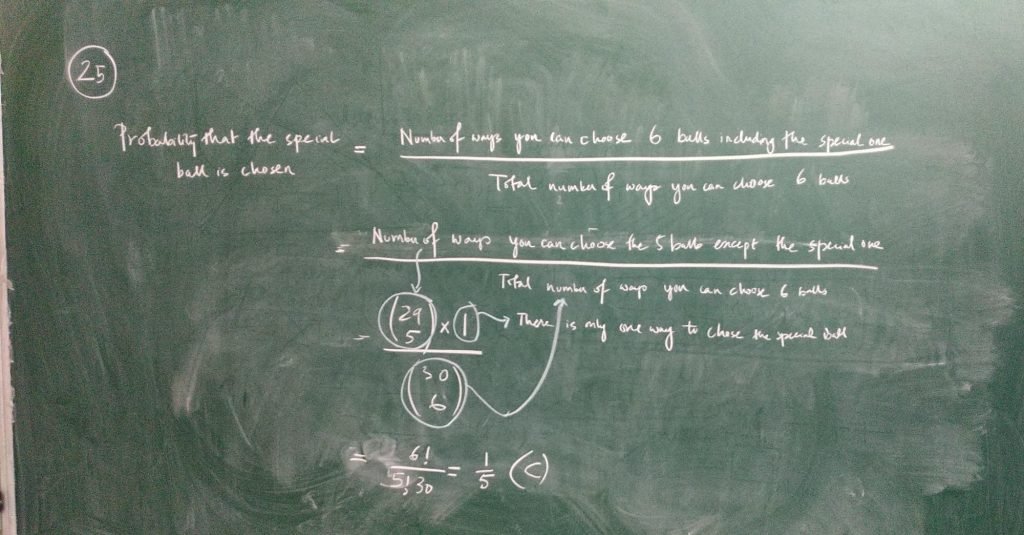 25
Probability that the special ball is chosen = Number of ways you can choose 6 balls including the special one
Total number of ways you can choose 6 balls
= Number of ways you can choose the 5 balls except the special one
Total number of ways you can choose 6 balls
= (29 5) × 1 → There is only one way to chose the special ball
(30 6)
= 6! / 5! 30 = 1/5 (C)